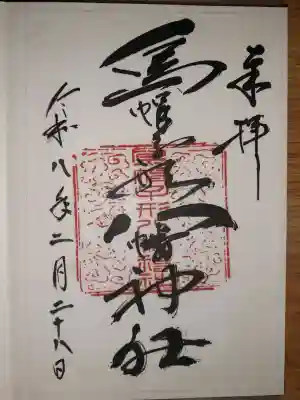 奉拝
烏帽子形八幡神社
令和八年二月二十八日